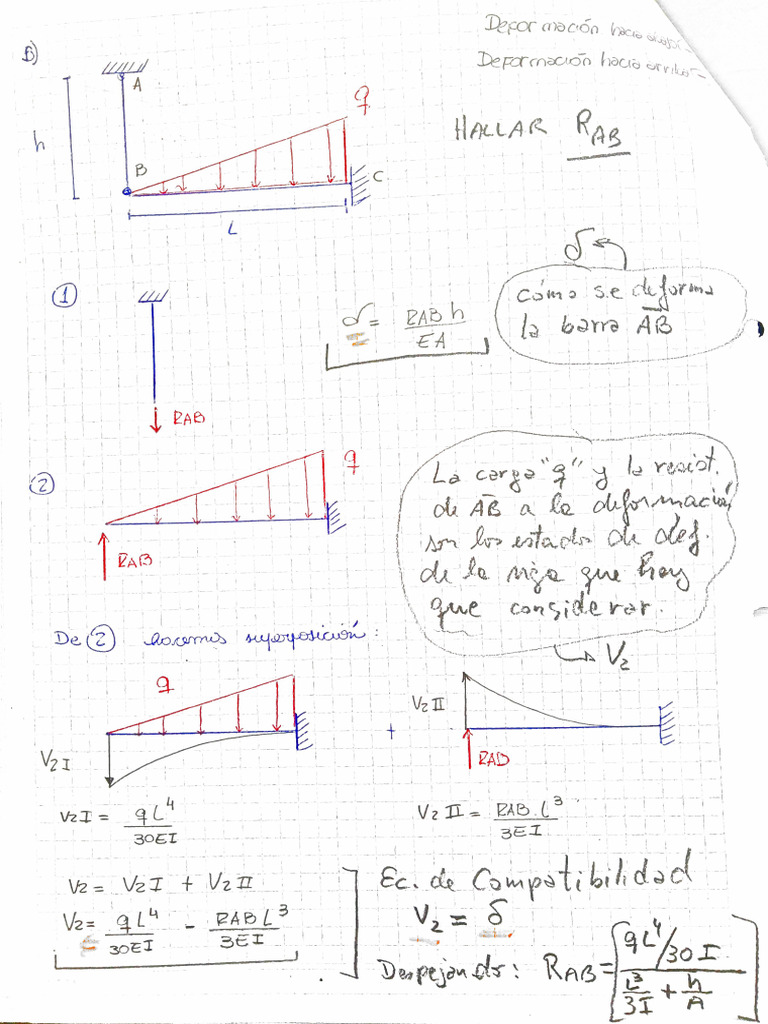 Deformación hacia abajo -
Deformación hacia arriba -
B)
A
q
HALLAR R_AB
h
B
C
L
δ
① 
cómo se deforma
la barra AB
δ = RAB h / EA
RAB
②
q
La carga "q" y la resist.
de AB a la deformación
son los estados de def.
de la viga que hay
que considerar.
RAB
V2
De ② hacemos superposición:
q
V2 I
+
V2 II
RAB
V2 I = qL⁴ / 30EI
V2 II = RAB. L³ / 3EI
V2 = V2 I + V2 II
V2 = qL⁴ / 30EI - RAB L³ / 3EI
Ec. de Compatibilidad
V2 = δ
Despejando: R_AB = [ qL⁴/30 I / L³/3I + h/A ]